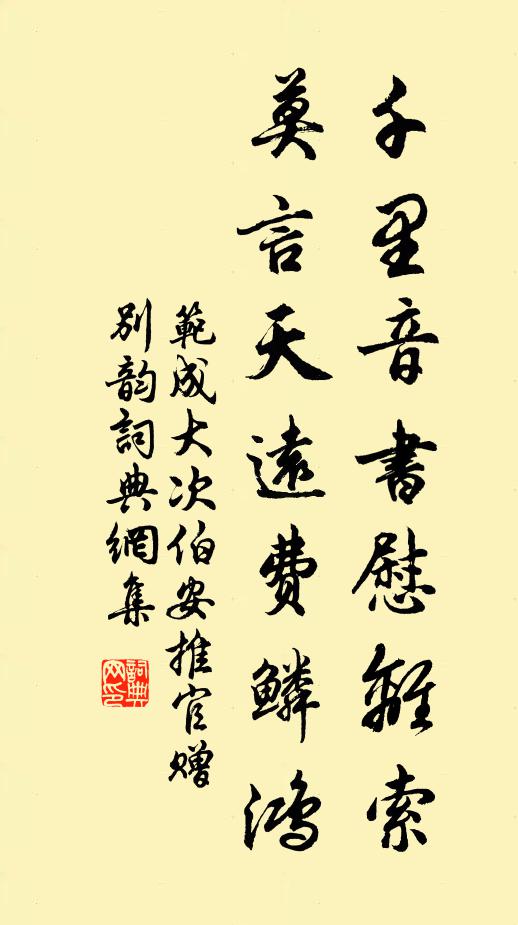 千里音書慰離索
莫言天遠費鱗鴻
範成大次伯安推官贈
別韵詞典網集
詞典
网印